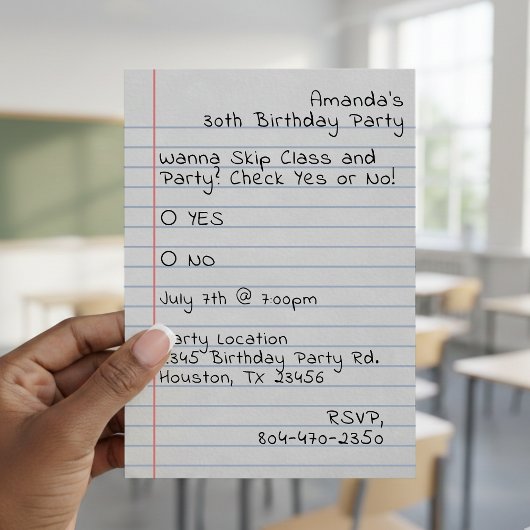 Amanda's
30th Birthday Party
Wanna Skip Class and
Party? Check Yes or No!
YES
NO
July 7th @ 7:00pm
Party Location
2345 Birthday Party Rd.
Houston, TX 23456
RSVP,
804-470-2350